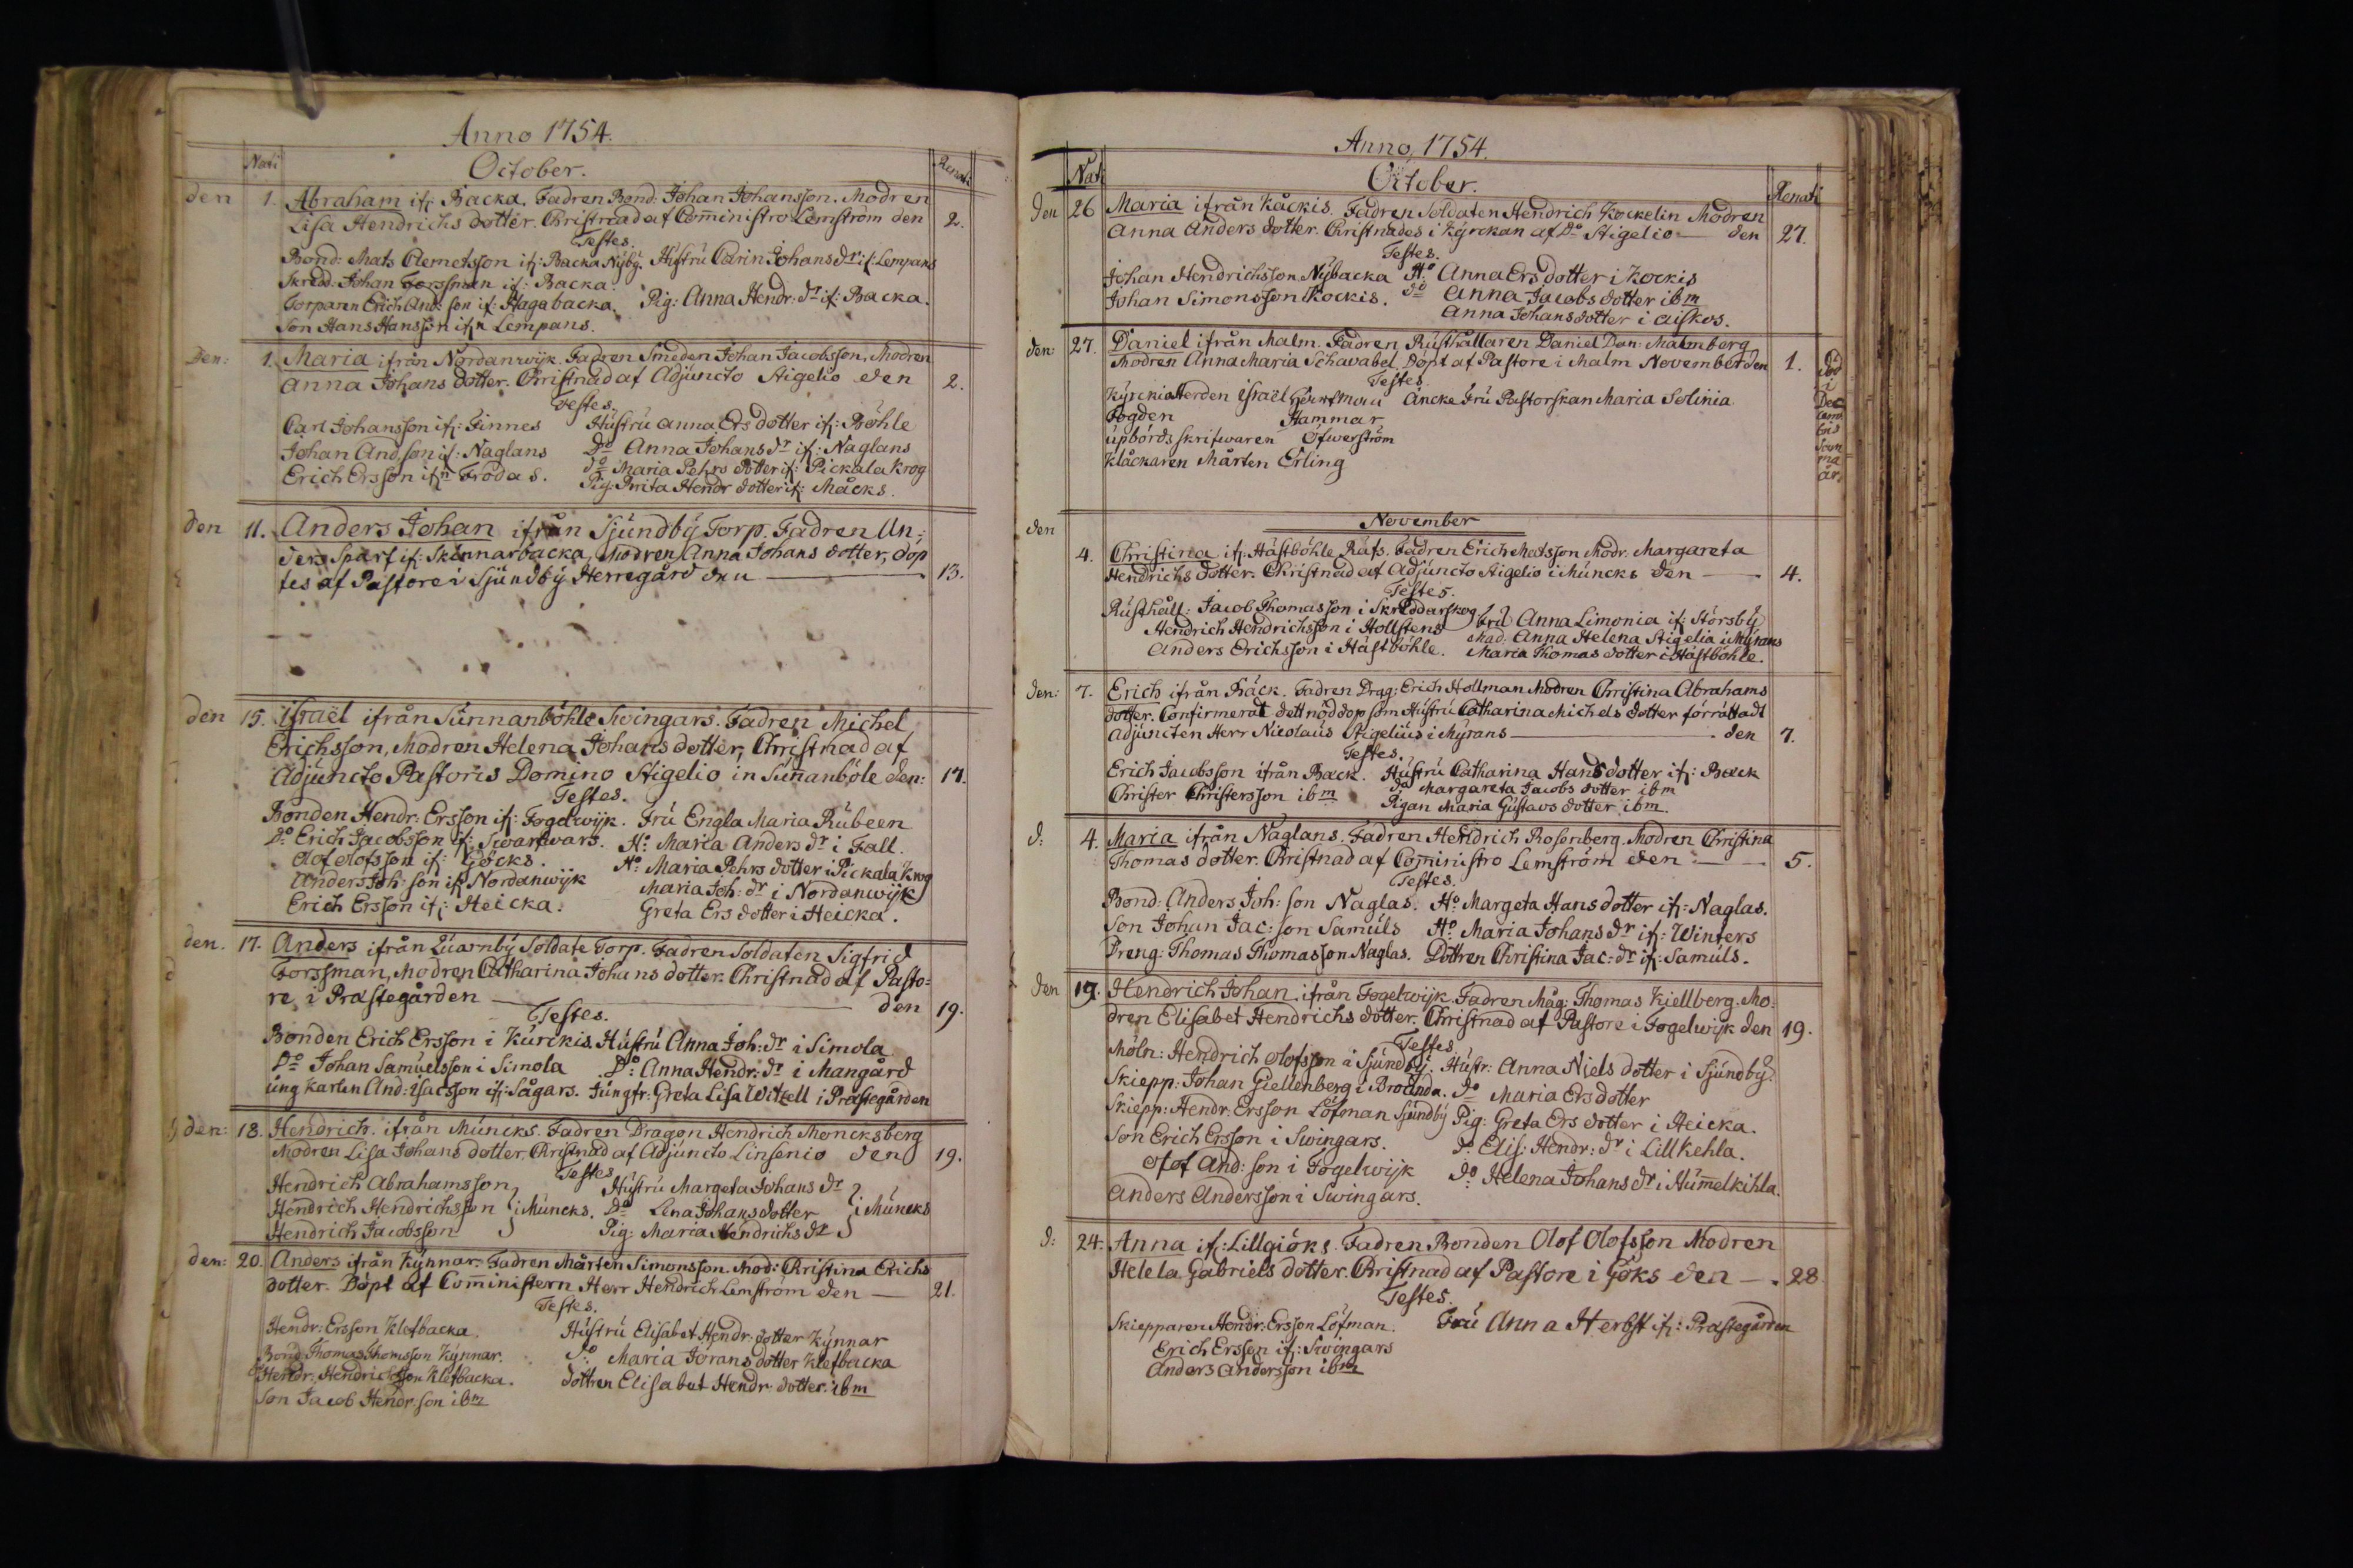 Anno 1754.
Nati October. Renati
den 1. Abraham if: Backa. Fadren Bond: Johan Johansson. Modren
Lisa Hendrichs dotter. Christnad af Comministro Lemström den 2.
Testes.
Bond: Mats Clemetsson if: Backa Nÿbÿ. Hustru Carin Johans dr if: Lempans
Skredd: Johan Forssman if: Backa.
Torparen Erich And: son if: Hagabacka. Pig: Anna Hendr: dr if: Backa.
Son Hans Hansson ifn Lempans.
Den: 1. Maria ifrån Nordanwijk. Fadren Smeden Johan Jacobsson, Modren
Anna Johans dotter. Christnad af Adjuncto Stigelio den 2.
Testes.
Carl Johansson if: Finnes Hustru Anna Ers dotter if: Böhle
Johan And. son if: Naglans Do Anna Johans dr if: Naglans
Erich Ersson ifn Frodas. do Maria Pehrs dotter if: Pickala Krog
Pig: Brita Hendr dotter if: Måcks.
den 11. Anders Johan ifrån Sjundbÿ Torp. Fadren An-
ders Sparf if: Skinnarbacka, Modren Anna Johans dotter, döp
tes af Pastore i Sjundbÿ Herregård den 13.
den 15. Israël ifrån Sunnanböhle Swingars. Fadren Michel
Erichsson, Modren Helena Johans dotter, Christnad af
Adjuncto Pastoris Domino Stigelio in Sunnanböle den: 17.
Testes.
Bonden Hendr: Ersson if: Fogelwijk. Fru Engla Maria Rubeen
Do Erich Jacobsson if: Swartwars. Ho: Maria Anders dr i Fall.
Olof Olofsson if: Göcks. Ho: Maria Pehrs dotter i Pickala Krog
Anders Joh: son if: Nordanwijk Maria Joh: dr i Nordanwijk
Erich Ersson if: Heicka. Greta Ers dotter i Heicka.
den. 17. Anders ifrån Quarnbÿ Soldate Torp. Fadren Soldaten Sigfrid
Forssman, Modren Catharina Johans dotter. Christnad af Pasto-
re i Prästegården den 19.
Testes.
Bonden Erich Ersson i Kurckis. Hustru Anna Joh: dr i Simola
Do Johan Samuelsson i Simola Do: Anna Hendr: dr i Mangård
ung karlen And: Isacsson if: Sågars. Jungfr: Greta Lisa Witzell i Prästegården
den: 18. Hendrich. ifrån Muncks. Fadren Dragon Hendrich Moncksberg
Modren Lisa Johans dotter. Christnad af Adjuncto Linsenio den 19.
Testes
Hendrich Abrahamsson Hustru Margeta Johans dr
Hendrich Hendrichsson i Muncks. Do Lena Johans dotter i Muncks
Hendrich Jacobsson Pig: Maria Hendrichs dr
den: 20. Anders ifrån Kÿnnar. Fadren Mårten Simonsson. Mod: Christina Erichs
dotter. Döpt af Comministern Herr Hendrich Lemström den 21.
Testes.
Hendr: Ersson Klefbacka. Hustru Elisabet Hendr: dotter Kÿnnar
Bond Thomas Thomsson Kÿnnar. do: Maria Jörans dotter Klefbacka
Hendr: Hendricsson Klefbacka. dottren Elisabet Hendr: dotter. ibm
Son Jacob Hendr. son ibm
Anno 1754.
Nati October. Renati
Den 26 Maria ifrån Kåckis. Fadren Soldaten Hendrich Kockelin Modren
Anna Anders dotter. Christnades i Kÿrckan af Do Stigelio den 27.
Testes.
Johan Hendrichsson Nÿbacka Ho: Anna Ers dotter i Kockis
Johan Simonsson Kockis. do Anna Jacobs dotter ibm
Anna Johans dotter i Aiskos.
den: 27. Daniel ifrån Malm. Fadren Rusthållaren Daniel Dan: Malmberg
Modren Anna Maria Schavabel. Döpt af Pastore i Malm November den 1. död i Decembris samma år
Testes.
Kÿrckioherden Israël Encke fru Pastorskan Maria Solinia
Fogden Hammar
upbördsskrifwaren Öfwerström
Klåckaren Mårten Erling
November
den 4. Christina if: Hästböhle Rufs. Fadren Erich Matsson Modr. Margareta
Hendrichs dotter. Christnad af Adjuncto Stigelio i Muncks den 4.
Testes.
Rusthåll: Jacob Thomasson i Skreddarskog fru Anna Limonia if: Störsbÿ
Hendrich Hendrichsson i Hollstens Mad: Anna Helena Stigelia i Mÿrans
Anders Erichsson i Hästböhle. Maria Thomas dotter i Hästböhle.
den: 7. Erich ifrån Bäck. Fadren Drag: Erich Hollman Modren Christina Abrahams
dotter. Confirmerat dett nöddop som Hustru Catharina Michels dotter förrättadt
Adjuncten Herr Nicolaus Stigelius i Mÿrans den 7.
Testes.
Erich Jacobsson ifrån Back. Hustru Catharina Hans dotter if: Back
Christer Christersson ibm do Margareta Jacobs dotter ibm
Pigan Maria Gustavs dotter ibm.
d: 4. Maria ifrån Naglans. Fadren Hendrich Rosenberg. Modren Christina
Thomas dotter. Christnad af Comministro Lemström den 5.
Testes.
Bond: Anders Joh: son Naglas. Ho: Margeta Hans dotter if: Naglas.
Son Johan Jac: son Samuls Ho: Maria Johans dr if: Winters
Dreng: Thomas Thomasson Naglas. Dottren Christina Jac: dr if: Samuls.
den 19. Hendrich Johan. ifrån Fogelwijk. Fadren Måg: Thomas Kiellberg. Mo-
dren Elisabet Hendrichs dotter. Christnad af Pastore i Fogelwijk den 19.
Testes.
Möln: Hendrich Olofsson å Sjundbÿ. Hustr: Anna Niels dotter i Sjundbÿ.
Skiepp: Johan Giellenberg i Broända. do Maria Ers dotter
Skiepp: Hendr: Ersson Löfman Sjundbÿ Pig: Greta Ers dotter i Heicka.
Son Erich Ersson i Swingars. do: Elis: Hendr: dr i Lill Kehla.
Olof And: son i Fogelwijk do: Helena Johans dr i Hummelkihla.
Anders Andersson i Swingars.
d: 24. Anna if: Lillgiöks. Fadren Bonden Olof Olofsson Modren
Helela Gabriels dotter. Christnad af Pastore i Göks den 28.
Testes.
Skiepparen Hendr: Ersson Löfman. Fru Anna Herbst if: Prästegården
Erich Ersson if: Swingars
Anders Andersson ibm